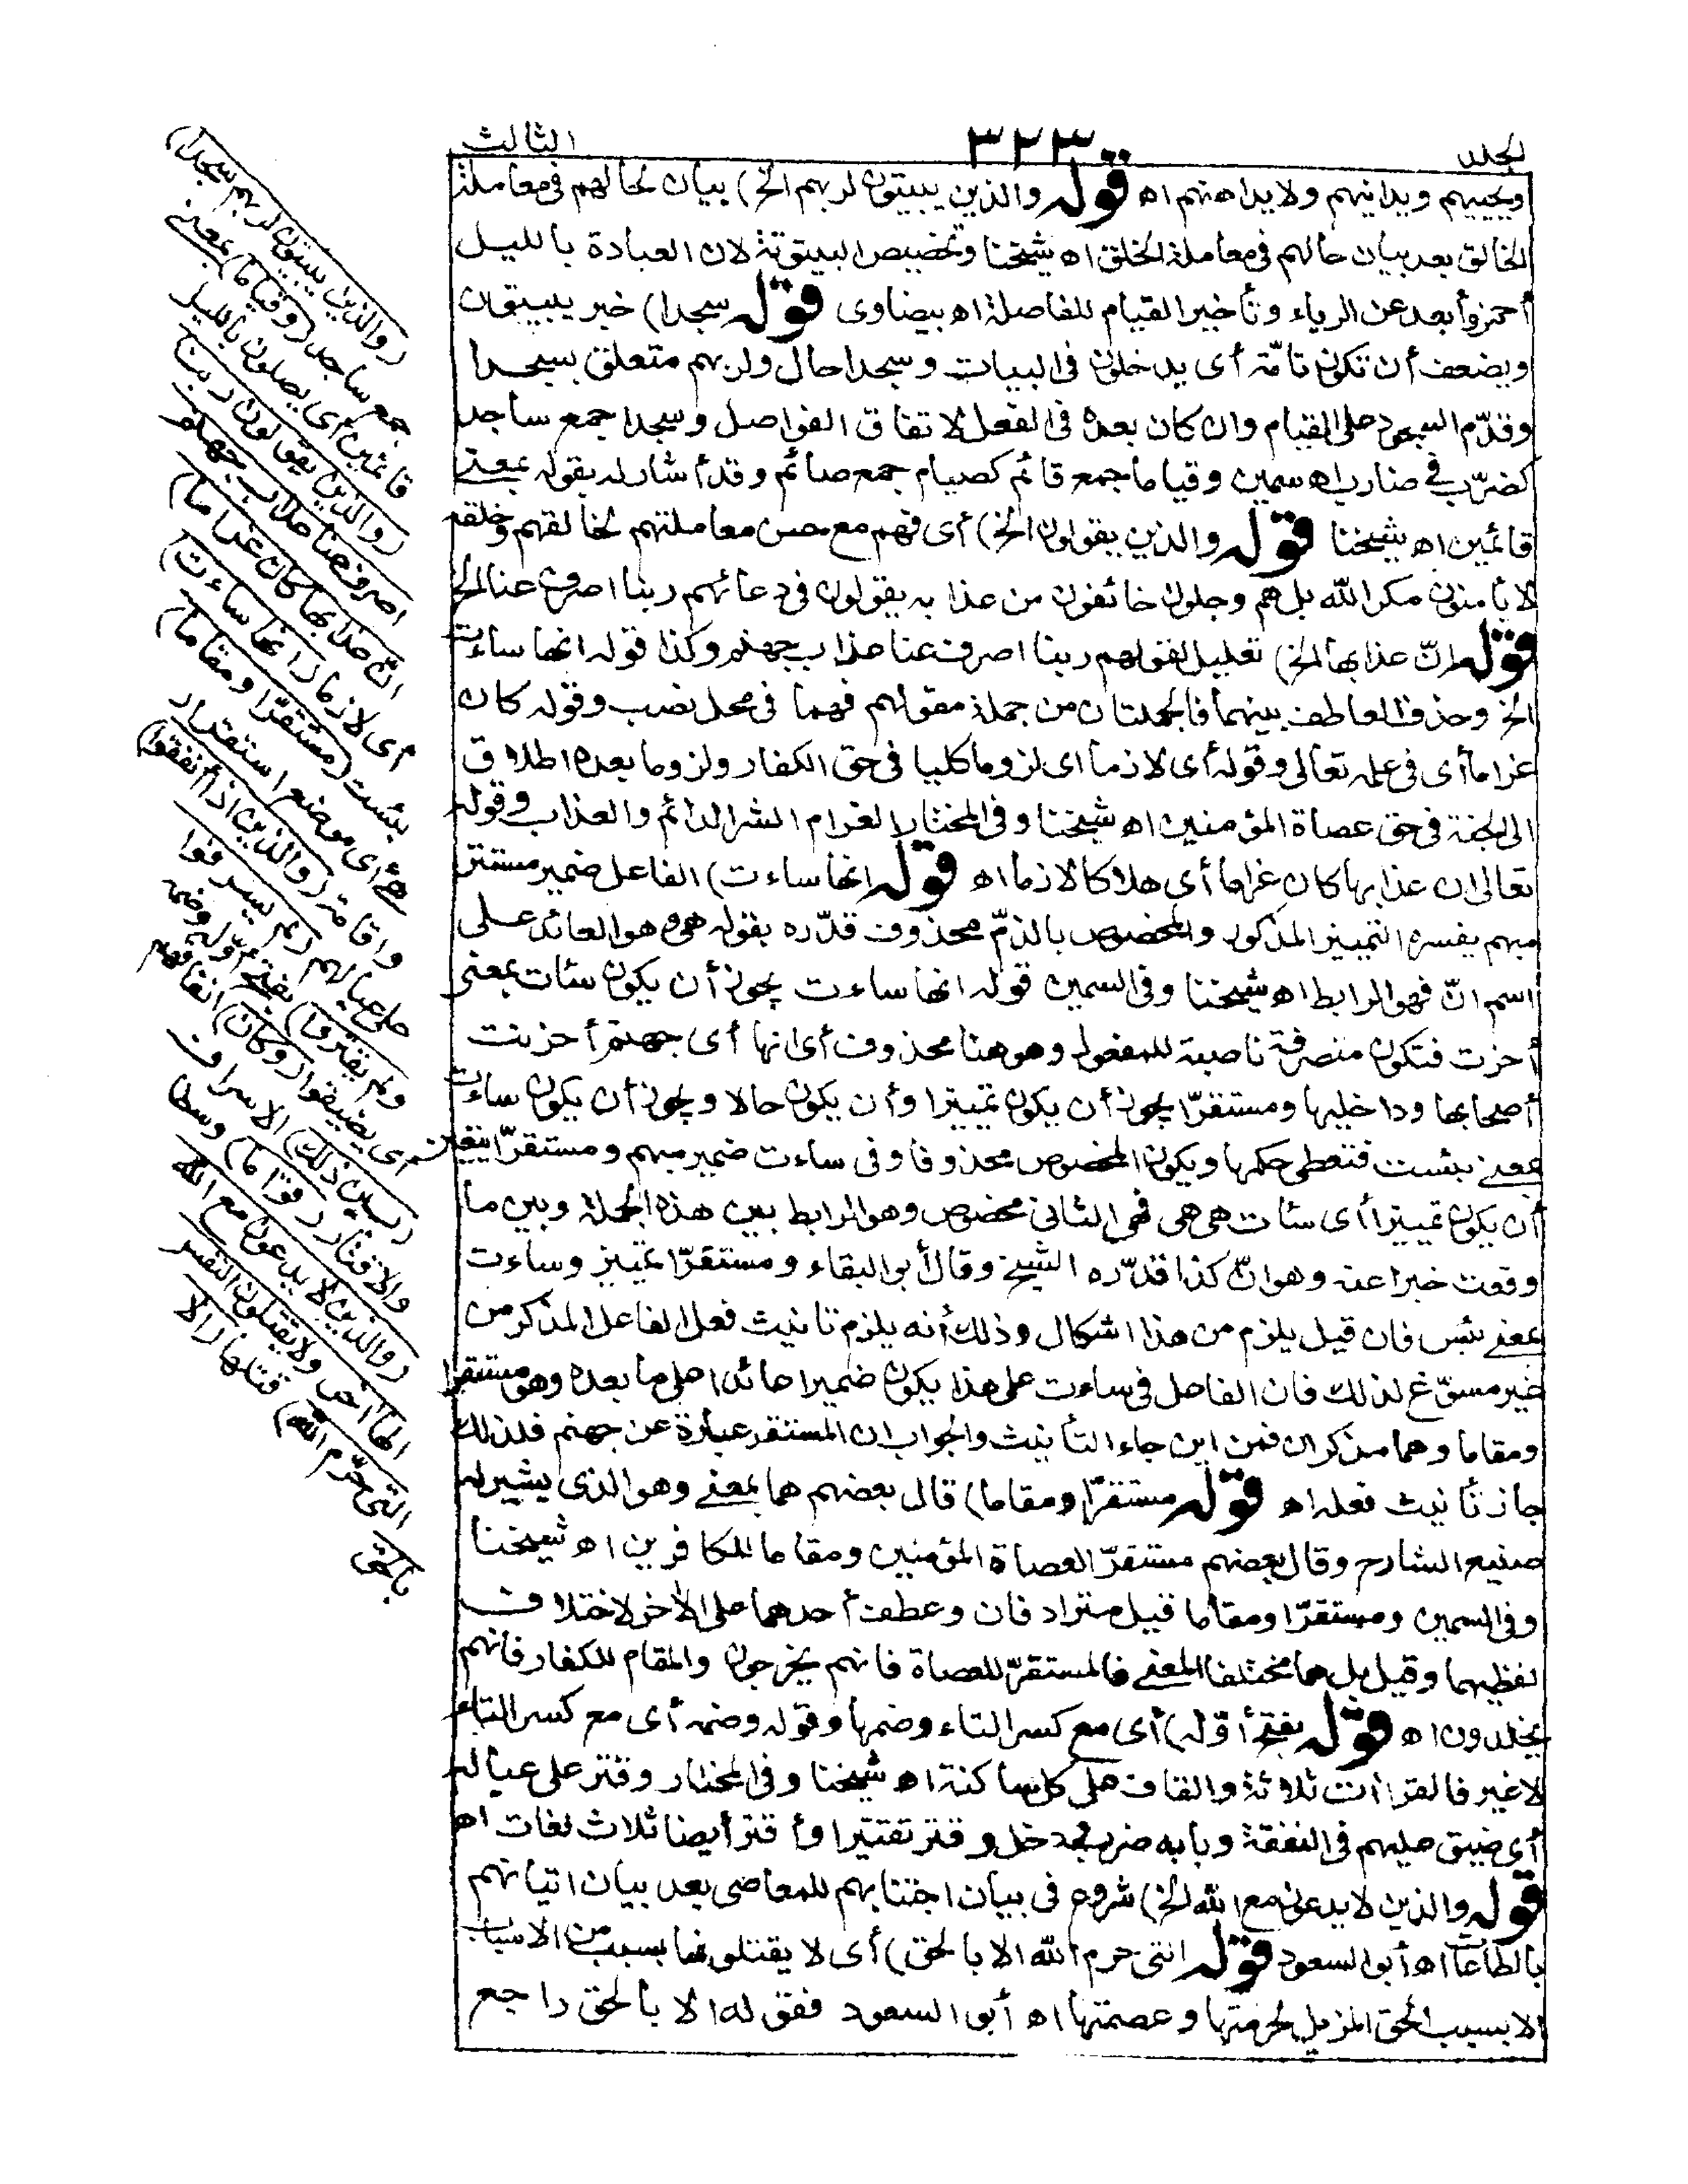 الجلد ٣٢٣ الثالث
ويحييهم ويدانيهم ولا يداهنهم اه قوله والذين يبيتون لربهم الخ) بيان لحالهم فى معاملة
الخالق بعد بيان حالهم فى معاملة الخلق اه شيخنا وتخصيص البيتوتة لان العبادة بالليل
أحمز وأبعد عن الرياء وتأخير القيام للفاصلة اه بيضاوى قوله سجدا) خبر يبيتون
ويضعف أن تكون تامّة أى يدخلون فى البيات وسجدا حال ولربهم متعلق بسجدا
وقدّم السجود على القيام وان كان بعده فى الفعل لاتفاق الفواصل وسجدا جمع ساجد
كضرّب فى ضارب اه سمين وقياما جمع قائم كصيام جمع صائم وقد أشار له بقوله بمعنى
قائمين اه شيخنا قوله والذين يقولون الخ) أى فهم مع حسن معاملتهم لخالقهم وخلقه
لا يأمنون مكر الله بل هم وجلون خائفون من عذابه يقولون فى دعائهم ربنا اصرف عنا الخ
قوله انّ عذابها الخ) تعليل لقولهم ربنا اصرف عنا عذاب جهنم وكذا قوله انها ساءت
الخ وحذف العاطف بينهما فالجملتان من جملة مقولهم فهما فى محل نصب وقوله كان
غراما أى فى علمه تعالى وقوله أى لازما اى لزوما كليا فى حق الكفار ولزوما بعده اطلاق
الى الجنة فى حق عصاة المؤمنين اه شيخنا وفى المختار الغرام الشر الدائم والعذاب وقوله
تعالى ان عذابها كان غراما أى هلاكا لازما اه قوله انها ساءت) الفاعل ضمير مستتر
مبهم يفسره التمييز المذكور والمخصوص بالذمّ محذوف قدّره بقوله هى وهو العائد على
اسم انّ فهو الرابط اه شيخنا وفى السمين قوله انها ساءت يجوز أن يكون سئات بمعنى
أحزنت فتكون متصرفة ناصبة للمفعول وهو هنا محذوف أى انها أى جهنم أحزنت
أصحابها وداخليها ومستقرّا يجوز أن يكون تمييزا وأن يكون حالا ويجوز أن يكون ساءت
بمعنى بئست فتعطى حكمها ويكون المخصوص محذوفا وفى ساءت ضمير مبهم ومستقرّا يتعين
أن يكون تمييزا أى سئات هى هى فهى الثانى مخصوص وهو الرابط بين هذه الجملة وبين ما
وقعت خبرا عنه وهو انّ كذا قدّره الشيخ وقال أبو البقاء ومستقرّا تمييز وساءت
بمعنى بئس فان قيل يلزم من هذا اشكال وذلك أنه يلزم تانيث فعل الفاعل المذكر من
غير مسوّغ لذلك فان الفاعل فى ساءت على هذا يكون ضميرا عائدا على ما بعده وهو مستقرا
ومقاما وهما مذكران فمن اين جاء التأنيث والجواب ان المستقر عبارة عن جهنم فلذلك
جاز تأنيث فعله اه قوله مستقرّا ومقاما) قال بعضهم هما بمعنى وهو الذى يشير له
صنيع الشارح وقال بعضهم مستقرّا لعصاة المؤمنين ومقاما للكافرين اه شيخنا
وفى السمين ومستقرّا ومقاما قيل مترادفان وعطف أحدهما على الآخر لاختلاف
لفظيهما وقيل بل هما مختلفا المعنى فالمستقرّ للعصاة فانهم يخرجون والمقام للكفار فانهم
يخلدون اه قوله بفتح أوّله) أى مع كسر التاء وضمها وقوله وضمه أى مع كسر التاء
لا غير فالقرا آت ثلاثة والقاف على كل ساكنة اه شيخنا وفى المختار وقتر على عياله
أى ضيق عليهم فى النفقة وبابه ضرب ودخل وقتر تقتيرا وأقتر أيضا ثلاث لغات اه
قوله والذين لا يدعون مع الله الخ) شروع فى بيان اجتنابهم للمعاصى بعد بيان اتيانهم
بالطاعات اه أبو السعود قوله التى حرم الله الا بالحق) أى لا يقتلونها بسبب من الاسباب
الا بسبب الحق المزيل لحرمتها وعصمتها اه أبو السعود فقوله الا بالحق راجع
(والذين يبيتون لربهم سجدا)
جمع ساجد (وقياما) بمعنى
قائمين أى يصلون بالليل
(والذين يقولون ربنا
اصرف عنا عذاب جهنم
انّ عذابها كان غراما)
أى لازما (انها ساءت)
بئست (مستقرّا ومقاما)
هى أى موضع استقرار
واقامة (والذين اذا أنفقوا)
على عيالهم (لم يسرفوا
ولم يقتروا) بفتح أوّله وضمه
أى يضيقوا (وكان) انفاقهم
(بين ذلك) الاسراف
والاقتار (قواما) وسطا
(والذين لا يدعون مع الله
الها آخر ولا يقتلون النفس
التى حرّم الله) قتلها (الا
بالحق